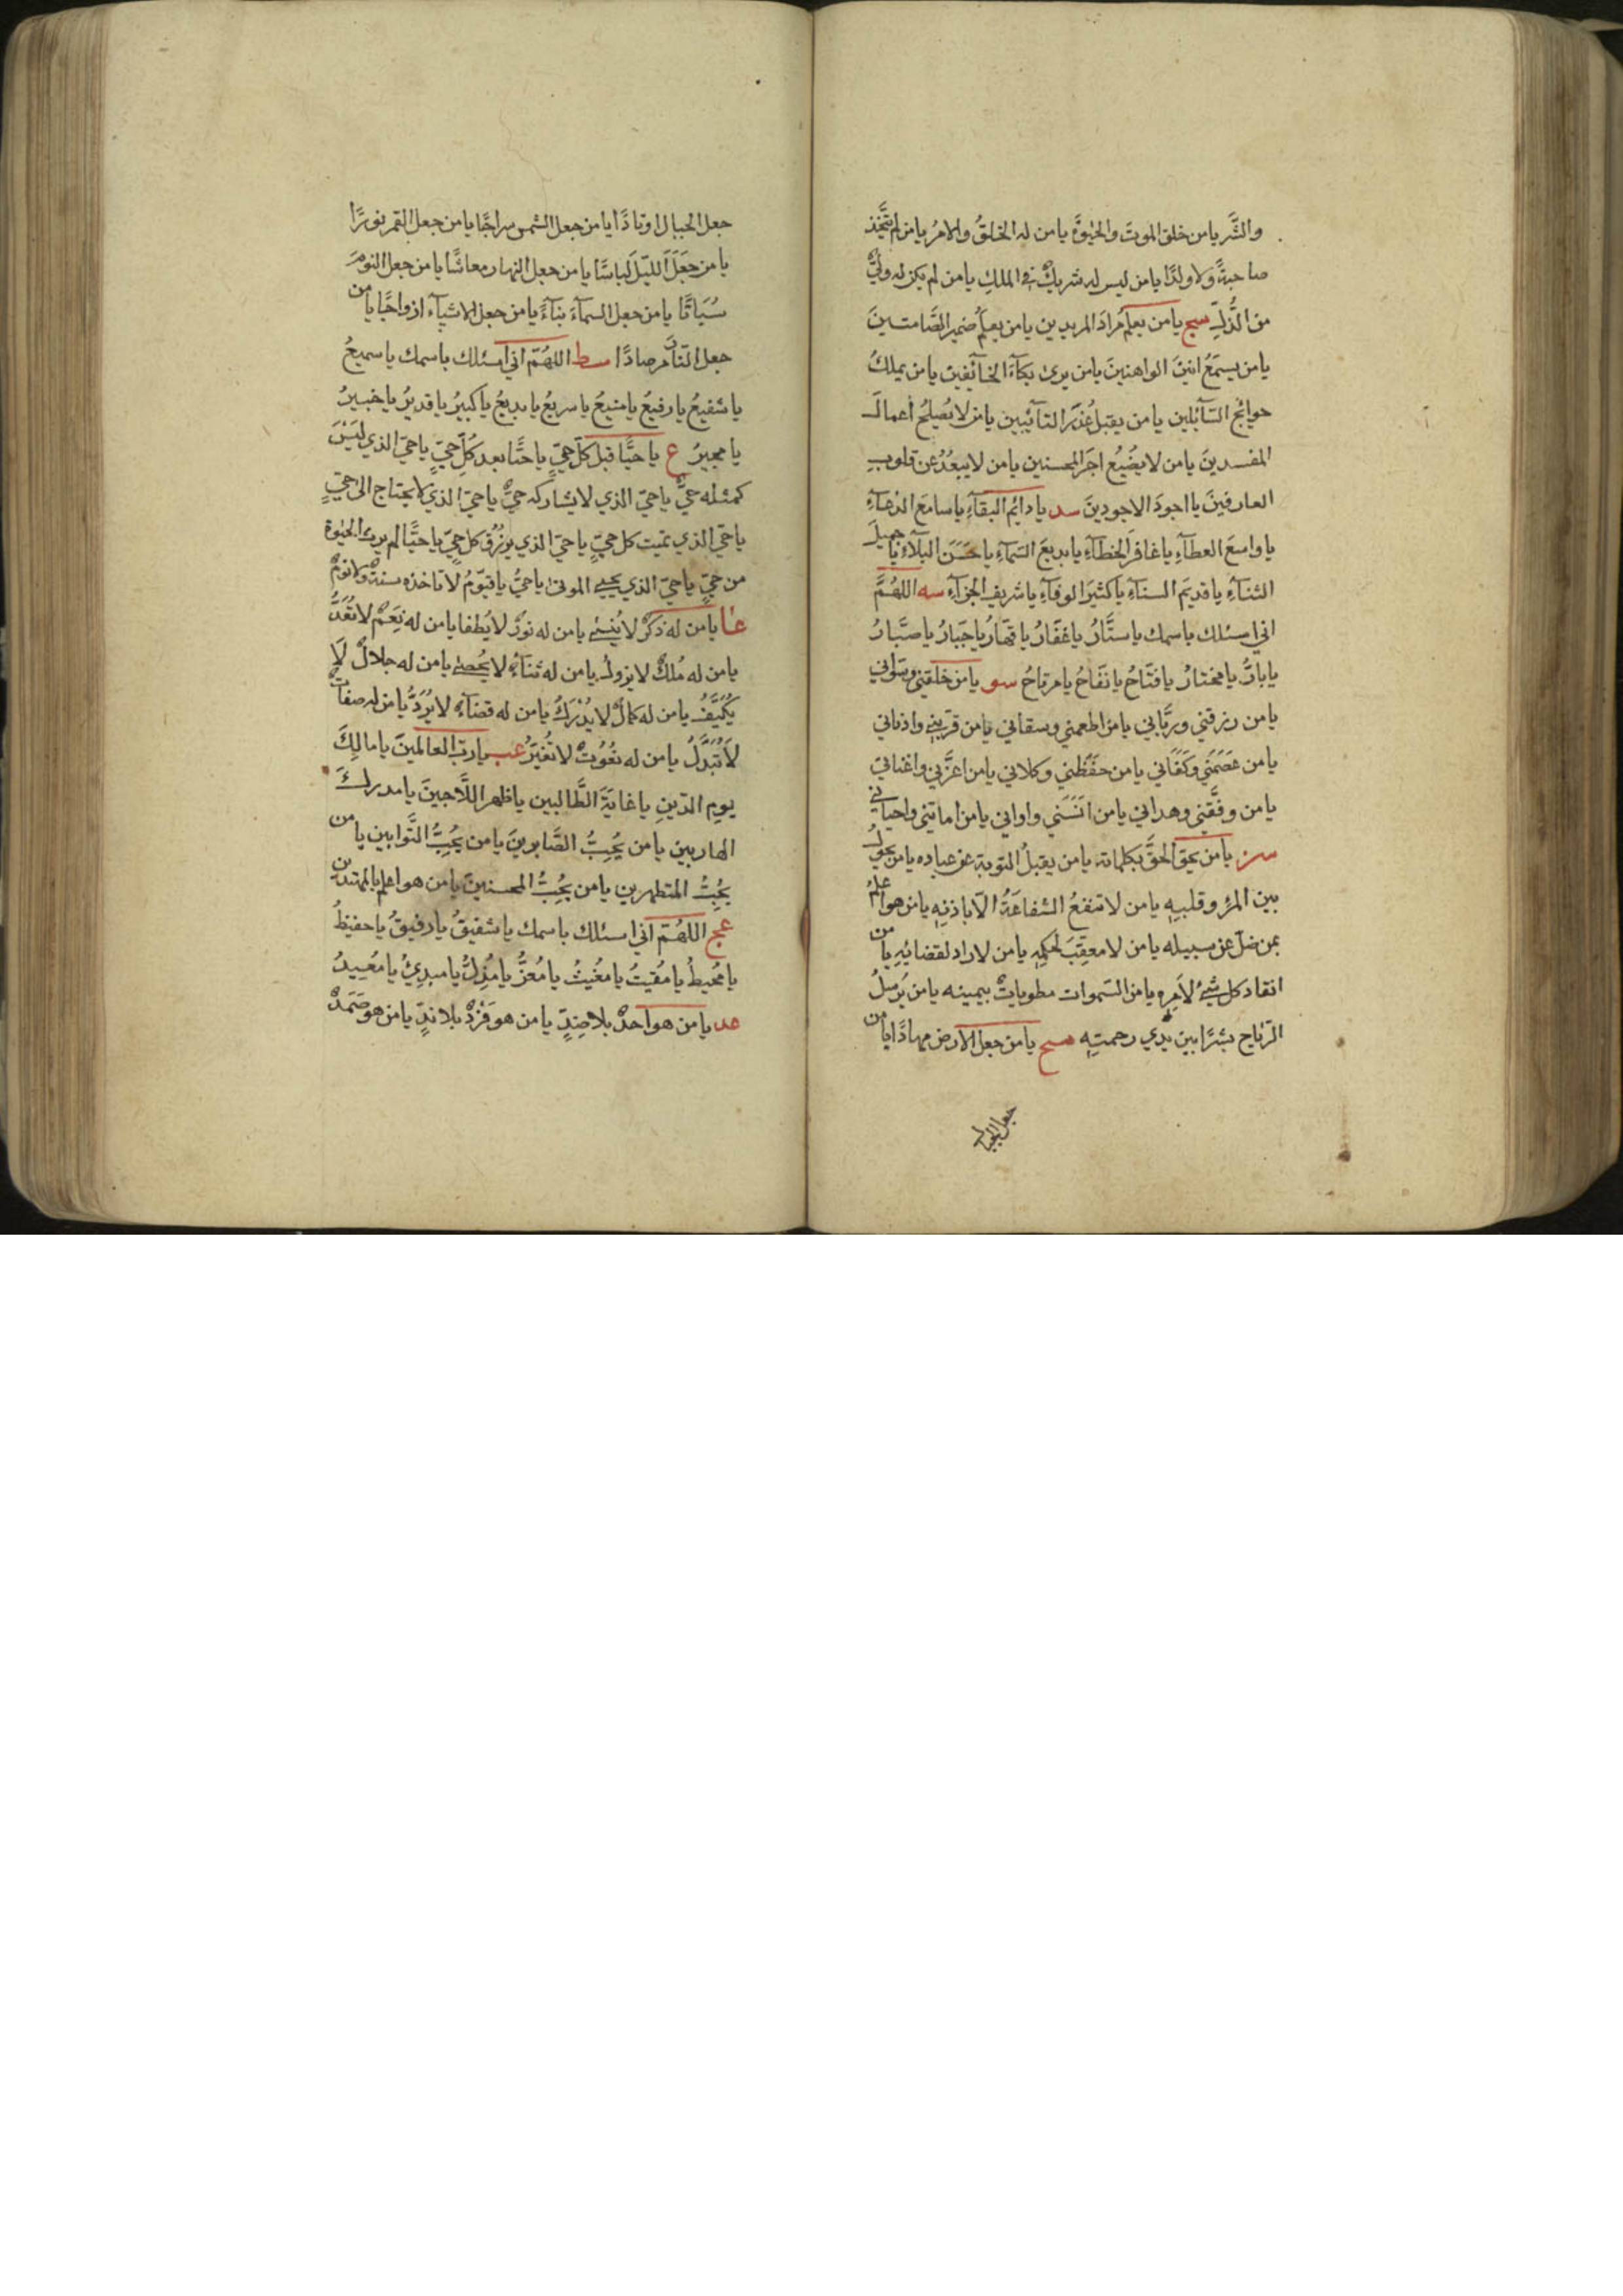 والشَّر يا من خلق الموتَ والحيٰوةَ يا من له الخلقُ والامرُ يا من لم يتَّخِذ
صاحبةً ولا ولدًا يا من ليس له شريكٌ في الملكِ يا من لم يكن له وليٌّ
من الذُّلِّ سج يا من يعلم مُرادَ المريدين يا من يعلَمُ ضميرَ الصَّامتينَ
يا من يسمَعُ انينَ الواهنينَ يا من يرىٰ بكآءَ الخآئفين يا من يملكُ
حوائج السّآئلين يا من يقبلُ عُذرَ التآئبين يا من لا يُصلِحُ اعمالَ
المفسدينَ يا من لا يضُيُع اجرَ المحسنين يا من لا يبعُدُ عن قلوبِ
العارفينَ يا اجودَ الاجودينَ سد يا دائم البقآءِ يا سامعَ الدعآءِ
يا واسعَ العطآءِ يا غافرَ الخطآءِ يا بديعَ السّمآءِ يا حَسَنَ البلآءِ يا جميلَ
الثنآءِ يا قديمَ السنآءِ يا كثيرَ الوفآءِ يا شريف الجزآءِ سه اللهُمَّ
اني اسئلك باسمك يا ستَّارُ يا غفَّارُ يا قهَّارُ يا جبَّارُ يا صبَّارُ
يا بارُّ يا مختارُ يا فتَّاحُ يا نفَّاحُ يا مرتاحُ سو يا من خلقني وسَوّاني
يا من رزقني وربَّاني يا من اطعمني وسقاني يا من قرّبني وادناني
يا من عَصَمَني وكَفَاني يا من حفَظني وكلاني يا من اعزَّني واغناني
يا من وفَّقني وهداني يا من انَسَني واواني يا من اماتني واحياني
سز يا من يحق الحقَّ بكلماته يا من يقبلُ التوبة عن عباده يا من يحولُ
بين المرْءِ وقلبهِ يا من لا تنفعُ الشفاعَةُ الّا باذنهِ يا من هو اعلمُ
بمن ضلّ عن سبيله يا من لا معقبَ لحكمهِ يا من لا رادّ لقضائهِ يا من
انقاد كل شيْءٍ لاَمرِه يا من السّموات مطوياتٌ بيمينه يا من يُرسلُ
الرّياح بشرًا بين يَدي رحمتِهِ سح يا من جعل الارض مهادًا يا من
جعل الجبال
جعل الجبال اوتادًا يا من جعل الشمس سراجًا يا من جعل القمر نورًا
يا من جَعَلَ الليلَ لباسًا يا من جعل النهار معاشًا يا من جعل النومَ
سُبَاتًا يا من جعل السمآءَ بنآءً يا من جعل الاشيآء ازواجًا يا من
جعل النّارَ مرصادًا سط اللهُمّ اني اسئلك باسمك يا سميعُ
يا شفيعُ يا رفيعُ يا منيعُ يا سريعُ يا بديعُ يا كبيرُ يا قديرُ يا خبيرُ
يا مجيرُ ع يا حيًّا قبل كلّ حيٍّ يا حيًّا بعد كُلّ حيٍّ يا حيّ الذي ليسَ
كمثله حيٌّ يا حيّ الذي لا يشاركه حيٌّ يا حيّ الذي لا يحتاج الى حيٍّ
يا حيّ الذي تميت كل حيٍّ يا حيّ الذي يرزُق كل حيٍّ يا حيًّا لم يرث الحيٰوة
من حيٍّ يا حيّ الذي يحيي الموتىٰ يا حيُّ يا قيّومُ لا تاخذه سنةٌ ولا نومٌ
عا يا من له ذكرٌ لا يُنسىٰ يا من له نورٌ لا يُطفا يا من له نِعَمٌ لا تُعَدُّ
يا من له مُلكٌ لا يزولُ يا من له ثنآءٌ لا يُحصىٰ يا من له جلالٌ لا
يُكَيَّفُ يا من له كمالٌ لا يُدْرَكُ يا من له قضآءٌ لا يُرَدُّ يا من له صفاتٌ
لا تُبَدَّلُ يا من له نعُوُتٌ لا تُغيّرُ عب يا ربّ العالمينَ يا مالِكَ
يومِ الدّينِ يا غايَةَ الطَّالبين يا ظهر اللَّاجينَ يا مدركَ
الهاربين يا من يُحِبُّ الصَّابرينَ يا من يحُبُّ التَّوابين يا من
يحُبُّ المتطهرين يا من يحُبُّ المحسنينَ يا من هو اعلم بالمهتدين
عج اللهُمّ اني اسئلك باسمك يا شفيقُ يا رفيقُ يا حفيظُ
يا مُحيطُ يا مُقيتُ يا مغُيثُ يا مُعزُّ يا مُذِلُّ يا مبدِئُ يا مُعِيدُ
عد يا من هو احدٌ بلا ضِدٍّ يا من هو فَرْدٌ بلا ندٍّ يا من هو صَمَدٌ